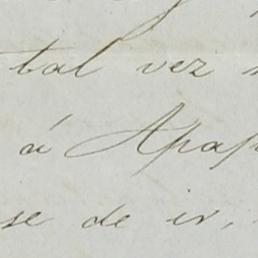 tal vez
á Apap
se de ir,